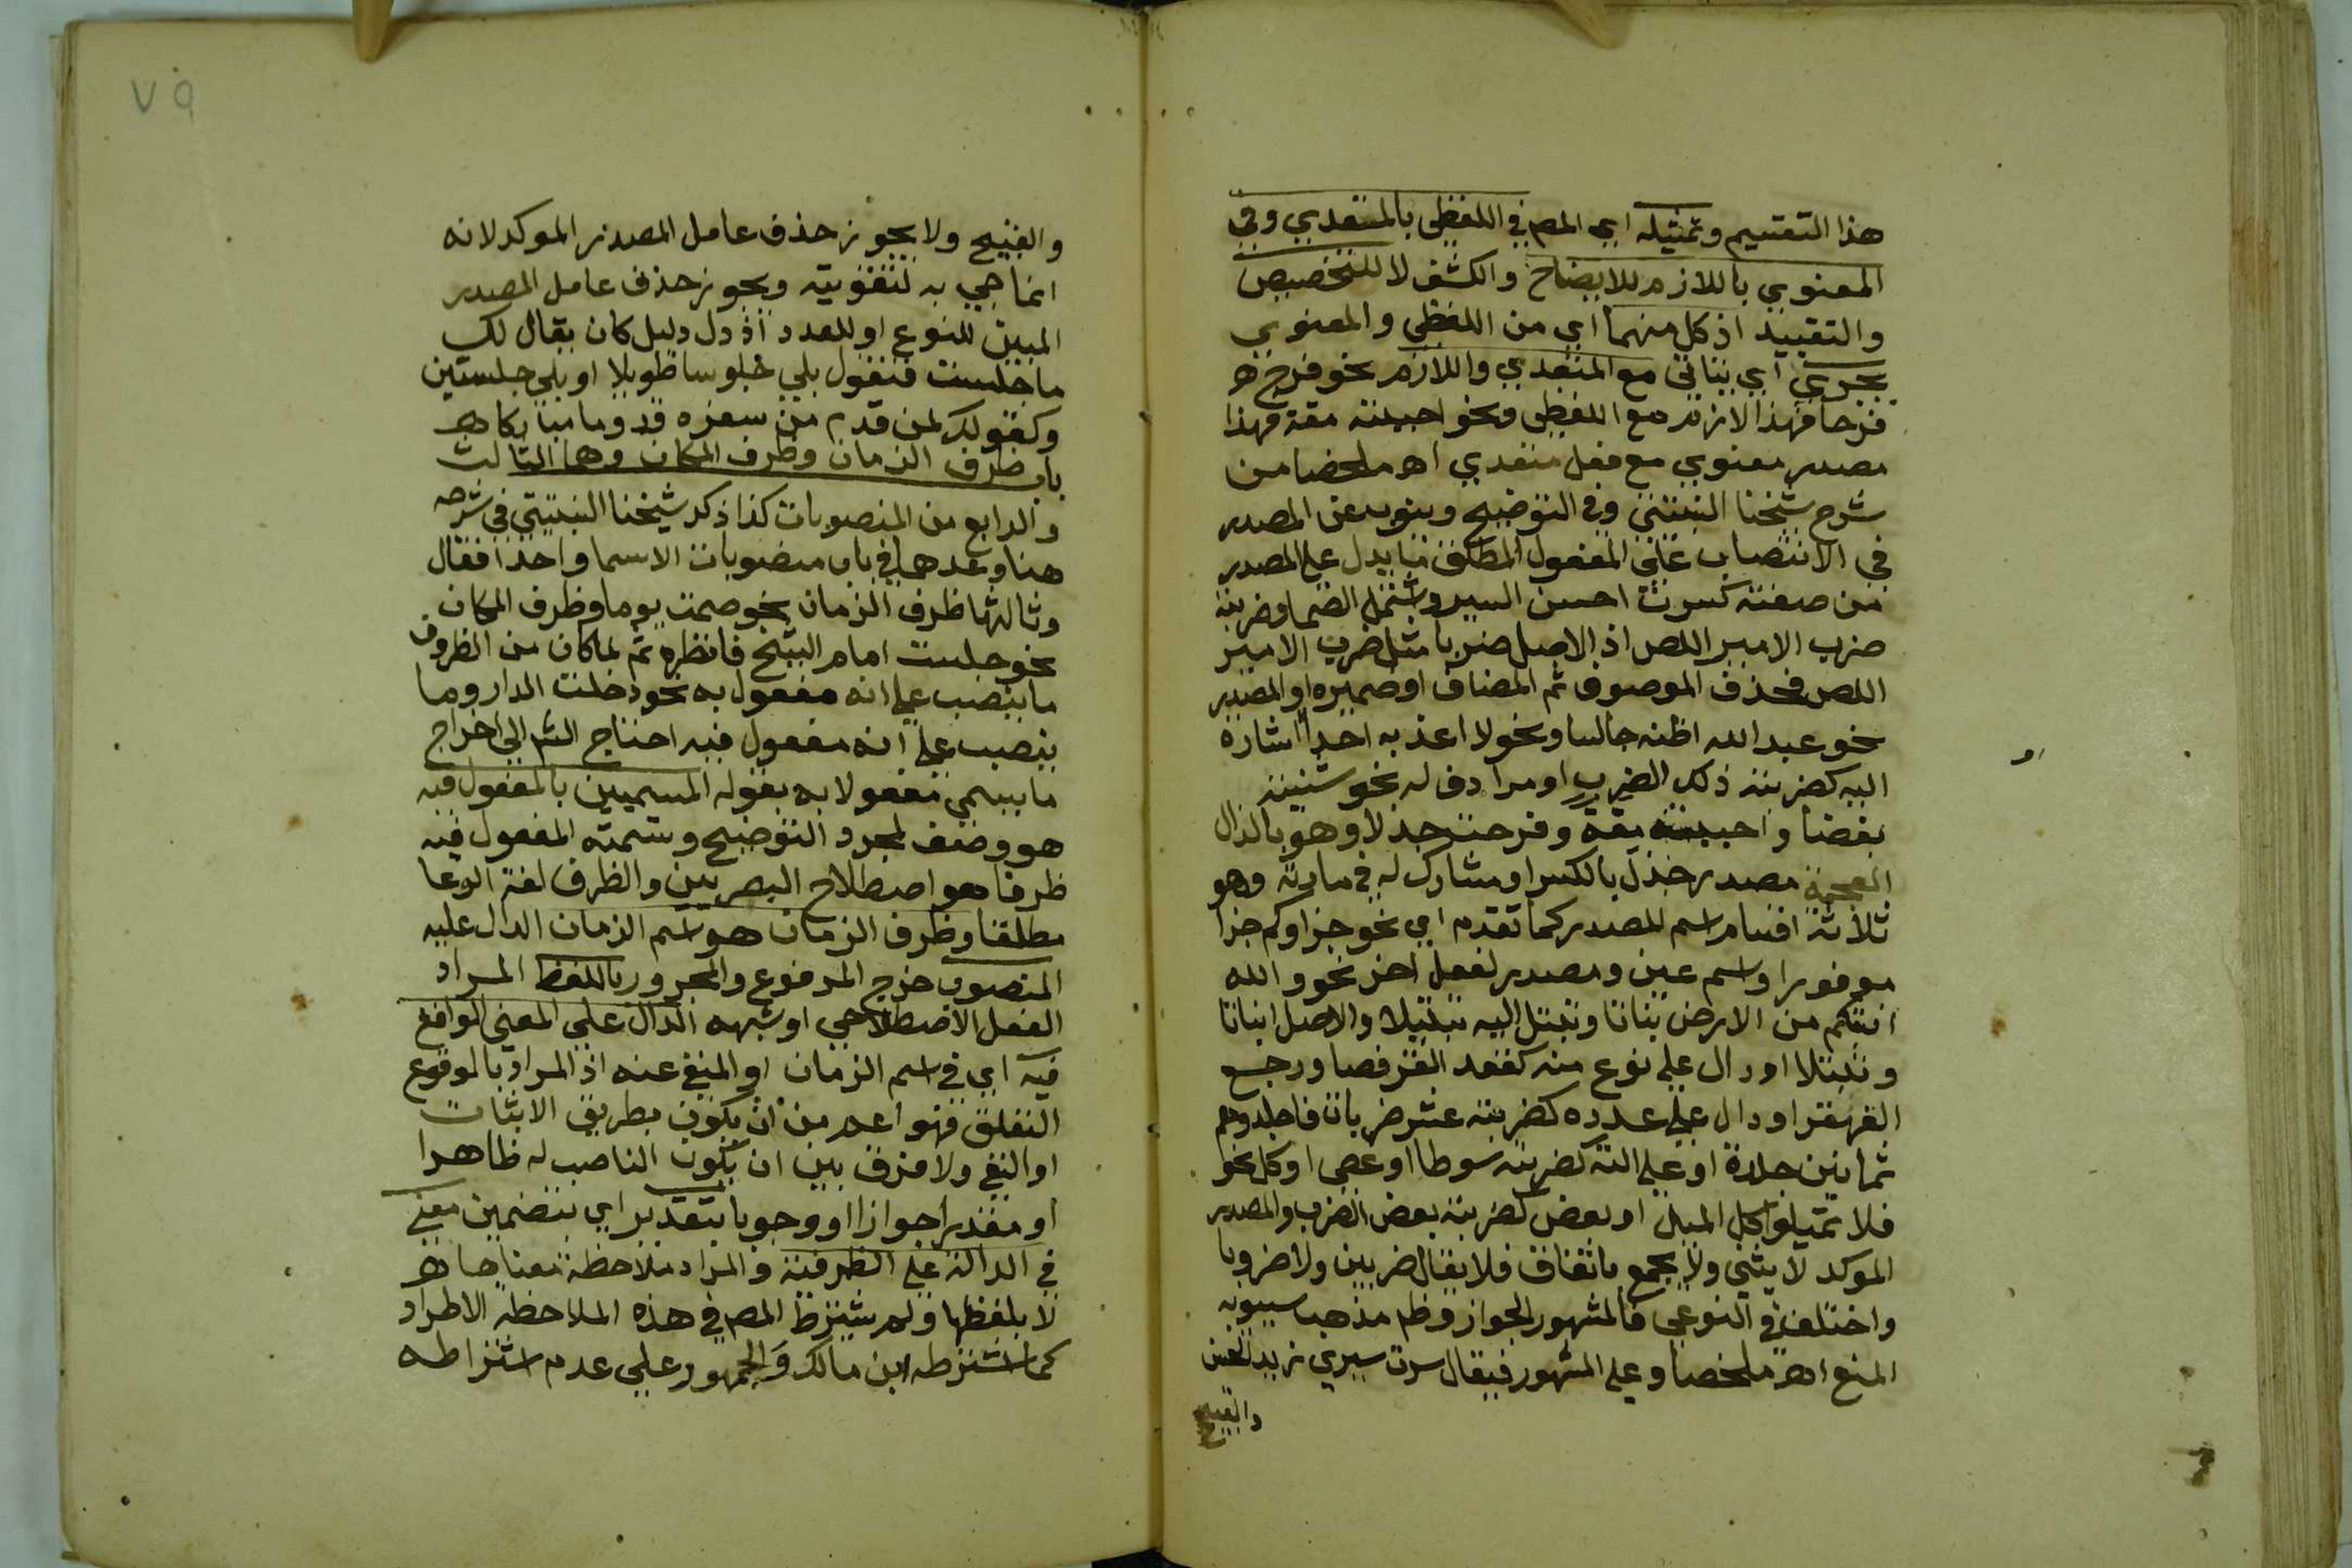 هذا التقسيم وتمثيله اي المص في اللفظي بالمتعدي وفي
المعنوي باللازم للايضاح والكشف لا للتخصيص
والتقييد اذ كل منهما اي من اللفظي والمعنوي
يجري اي يتاتى مع المتعدي واللازم نحو فرح
فرحا فهذا لازم مع اللفظي ونحو احببته مقة فهذا
مصدر معنوي مع فعل متعدي اهـ ملخصا من
شرح شيخنا النبتيتي وفي التوضيح وينوب عن المصدر
في الانتصاب على المفعول المطلق ما يدل على المصدر
من صفته كسرت احسن السير واشتمل الصما وضربته
ضرب الامير اللص اذ الاصل ضربا مثل ضرب الامير
اللص فحذف الموصوف ثم المضاف او ضميره او المصدر
نحو عبد الله اظنه جالسا ونحو لا اعذبه احدا اشارة
اليه كضربته ذلك الضرب او مرادف له نحو شنيته
بغضا واحببته مقة وفرحت جذلا وهو بالذال
المعجمة مصدر جذل بالكسر او مشارك له في مادته وهو
ثلاثة اقسام اسم للمصدر كما تقدم اي نحو جزاوكم جزا
موفورا واسم عين ومصدر لفعل اخر نحو والله
انبتكم من الارض نباتا وتبتل اليه تبتيلا والاصل انباتا
وتبتلا او دال على نوع منه كقعد القرفصا ورجع
القهقرا او دال على عدده كضربته عشر ضربات فاجلدوهم
ثمانين جلدة او على الته كضربته سوطا او عصى او كل نحو
فلا تميلوا كل الميل او بعض كضربته بعض الضرب والمصدر
الموكد لا يثنى ولا يجمع باتفاق فلا يقال ضربين ولا ضروبا
واختلف في النوعي فالمشهور الجواز وظم مذهب سيبويه
المنع اهـ ملخصا وعلى المشهور فيقال سرت سيري زيد الحسن
والقبيح
٧٩
والقبيح ولا يجوز حذف عامل المصدر الموكد لانه
انما جي به لتقويته ويجوز حذف عامل المصدر
المبين للنوع او للعدد اذ دل دليل كان يقال لك
ما جلست فتقول بلى جلوسا طويلا او بلى جلستين
وكقولك لمن قدم من سفره قدوما مباركا اهـ
باب ظرف الزمان وظرف المكان وهما الثالث
والرابع من المنصوبات كذا ذكر شيخنا النبتيتي في شرحه
هنا وعدهما في باب منصوبات الاسما واحدا فقال
وثالثها ظرف الزمان نحو صمت يوما وظرف المكان
نحو جلست امام الشيخ فانظره ثم لما كان من الظروف
ما ينصب على انه مفعول به نحو دخلت الدار وما
ينصب على انه مفعول فيه احتاج الش الى اخراج
ما يسمى مفعولا به بقوله المسميين بالمفعول فيه
هو وصف لمجرد التوضيح وتسمية المفعول فيه
ظرفا هو اصطلاح البصريين والظرف لغة الوعا
مطلقا وظرف الزمان هو اسم الزمان الدال عليه
المنصوب خرج المرفوع والمجرور باللفظ المراد
الفعل الاصطلاحي او شبهه الدال على المعنى الواقع
فيه اي في اسم الزمان او المنفي عنه اذ المراد بالوقوع
التعلق فهو اعم من ان يكون بطريق الاثبات
او النفي ولا فرق بين ان يكون الناصب له ظاهرا
او مقدرا جوازا او وجوبا بتقدير اي بتضمين معنى
في الدالة على الظرفية والمراد ملاحظة معناها
لا بلفظها ولم يشترط المص في هذه الملاحظة الاطراد
كما اشترطه ابن مالك والجمهور على عدم اشتراطه